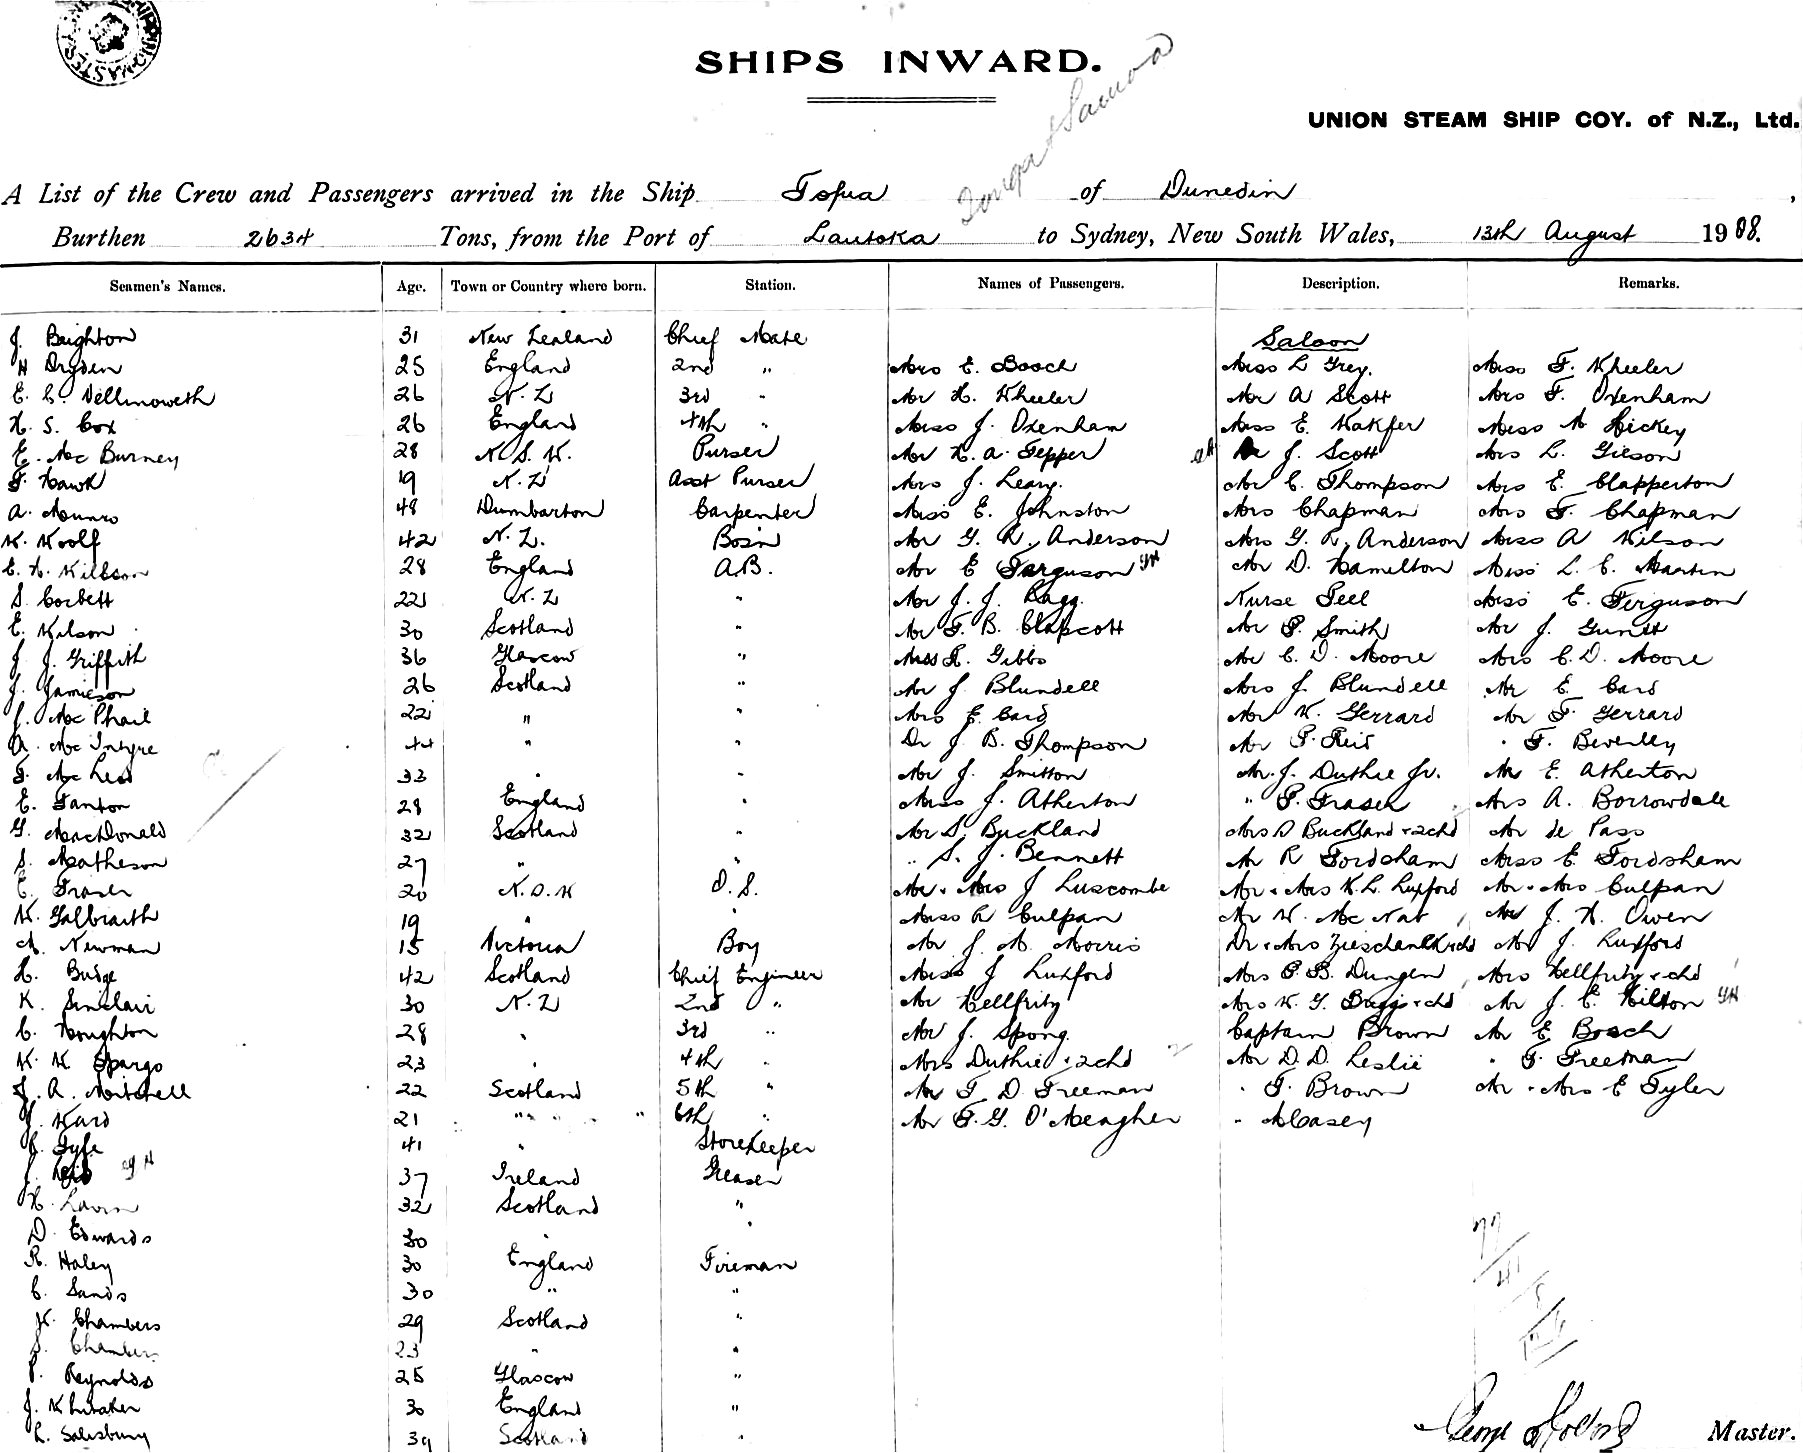 SHIPS INWARD.
Tonga & Samoa
UNION STEAM SHIP COY. of N.Z., Ltd.
A List of the Crew and Passengers arrived in the Ship Tofua of Dunedin,
Burthen 2634 Tons, from the Port of Lautoka to Sydney, New South Wales, 13th August 1908.
Seamen's Names. Age. Town or Country where born. Station. Names of Passengers. Description. Remarks.
J. Beighton 31 New Zealand Chief Mate Saloon
H Dryden 25 England 2nd " Mrs E. Bosch Miss L Grey. Miss F. Wheeler
E. C. Vellenoweth 26 N.Z 3rd " Mr H. Wheeler Mr A Scott Mrs F. Oxenham
H. S. Cox 26 England 4th " Miss J. Oxenham Miss E. Mickey
E. Mc Burney 28 N.S.W. Purser Mr H. A. Tepper J. Scott Mrs L.
F. Hawk 19 N.Z Asst Purser Mrs J. Leary. Mr C. Thompson Mrs E. Clapperton
A. Munro 48 Dumbarton Carpenter Miss E. Johnston Mrs Chapman Mrs F. Chapman
W. Woolf 42 N.Z. Bosn Mr G. R. Anderson Mrs G. R. Anderson Miss A Wilson
28 England A.B. Mr E Ferguson GH Mr D. Hamelton Miss L. C. Martin
S. Corbett 22 N.Z " Mr J. J. Ragg. Nurse Peel Miss E. Ferguson
E. Wilson 30 Scotland " Mr F. B. Clapcott Mr P. Smith Mr J.
J. J. Griffith 36 Glascow " Miss R. Gibbs Mr C. D. Moore Mrs C. D. Moore
J. Jamieson 26 Scotland " Mr J. Blundell Mrs J. Blundell Mr E. Card
J. Mc Phail 22 " " Mrs E. Card Mr W. Gerrard Mr F. Gerrard
A. Mc Intyre 44 " " Dr J. B. Thompson Mr P. Reid " F. Beverley
F. Mc Leod 33 " " Mr J. Smitton Mr. J. Duthie Jr. Mr E. Atherton
E. Tanton 28 England " Miss J. Atherton " P. Fraser Mrs A. Borrowdale
G. MacDonald 32 Scotland " Mr S. Buckland Mrs S Buckland + 2chd Mr de Pass
S. Matheson 27 " " " S. J. Bennett Mr R Fordsham Miss E. Fordsham
E. Fraser 20 N.S.W O.S. Mr + Mrs J Luscombe Mr + Mrs W. L. Luxford Mr + Mrs Culpan
W. Galbraith 19 " " Miss R Culpan Mr W. Mc Nab Mr J. H. Owen
A. Newman 15 Victoria Boy Mr J. M. Morris Dr + Mrs Mr J. Luxford
H. Budge 42 Scotland Chief Engineer Miss J Luxford Mrs P. B. Dungen Mrs Hellfritz + chd
K. Sinclair 30 N.Z 2nd " Mr Hellfritz Mrs W. G. Baggs + chd Mr J. C. Hilton GH
C. Houghton 28 " 3rd " Mr J. Spong. Captain Brown Mr E Bosch
W. W. Spargo 23 " 4th " Mrs Duthie + 2chd Mr D. D. Leslie " F. Freeman
J. A. Mitchell 22 Scotland 5th " Mr F. D. Freeman " F. Brown Mr + Mrs E Tyler
J. Ward 21 " " " " 6th " Mr F. G. O'Meagher " M Casey
C. Fyfe 41 " Storekeeper
J. Reid GH 37 Ireland Greaser
H. Lavin 32 Scotland "
D. Edwards 30 " "
R. Haley 30 England Fireman
C. Sands 30 " "
W. Chambers 29 Scotland "
S. Chambers 23 " "
P. Reynolds 25 Glascow "
J. Whitaker 30 England "
L. Salisbury 39 Scotland "
77
41
Master.